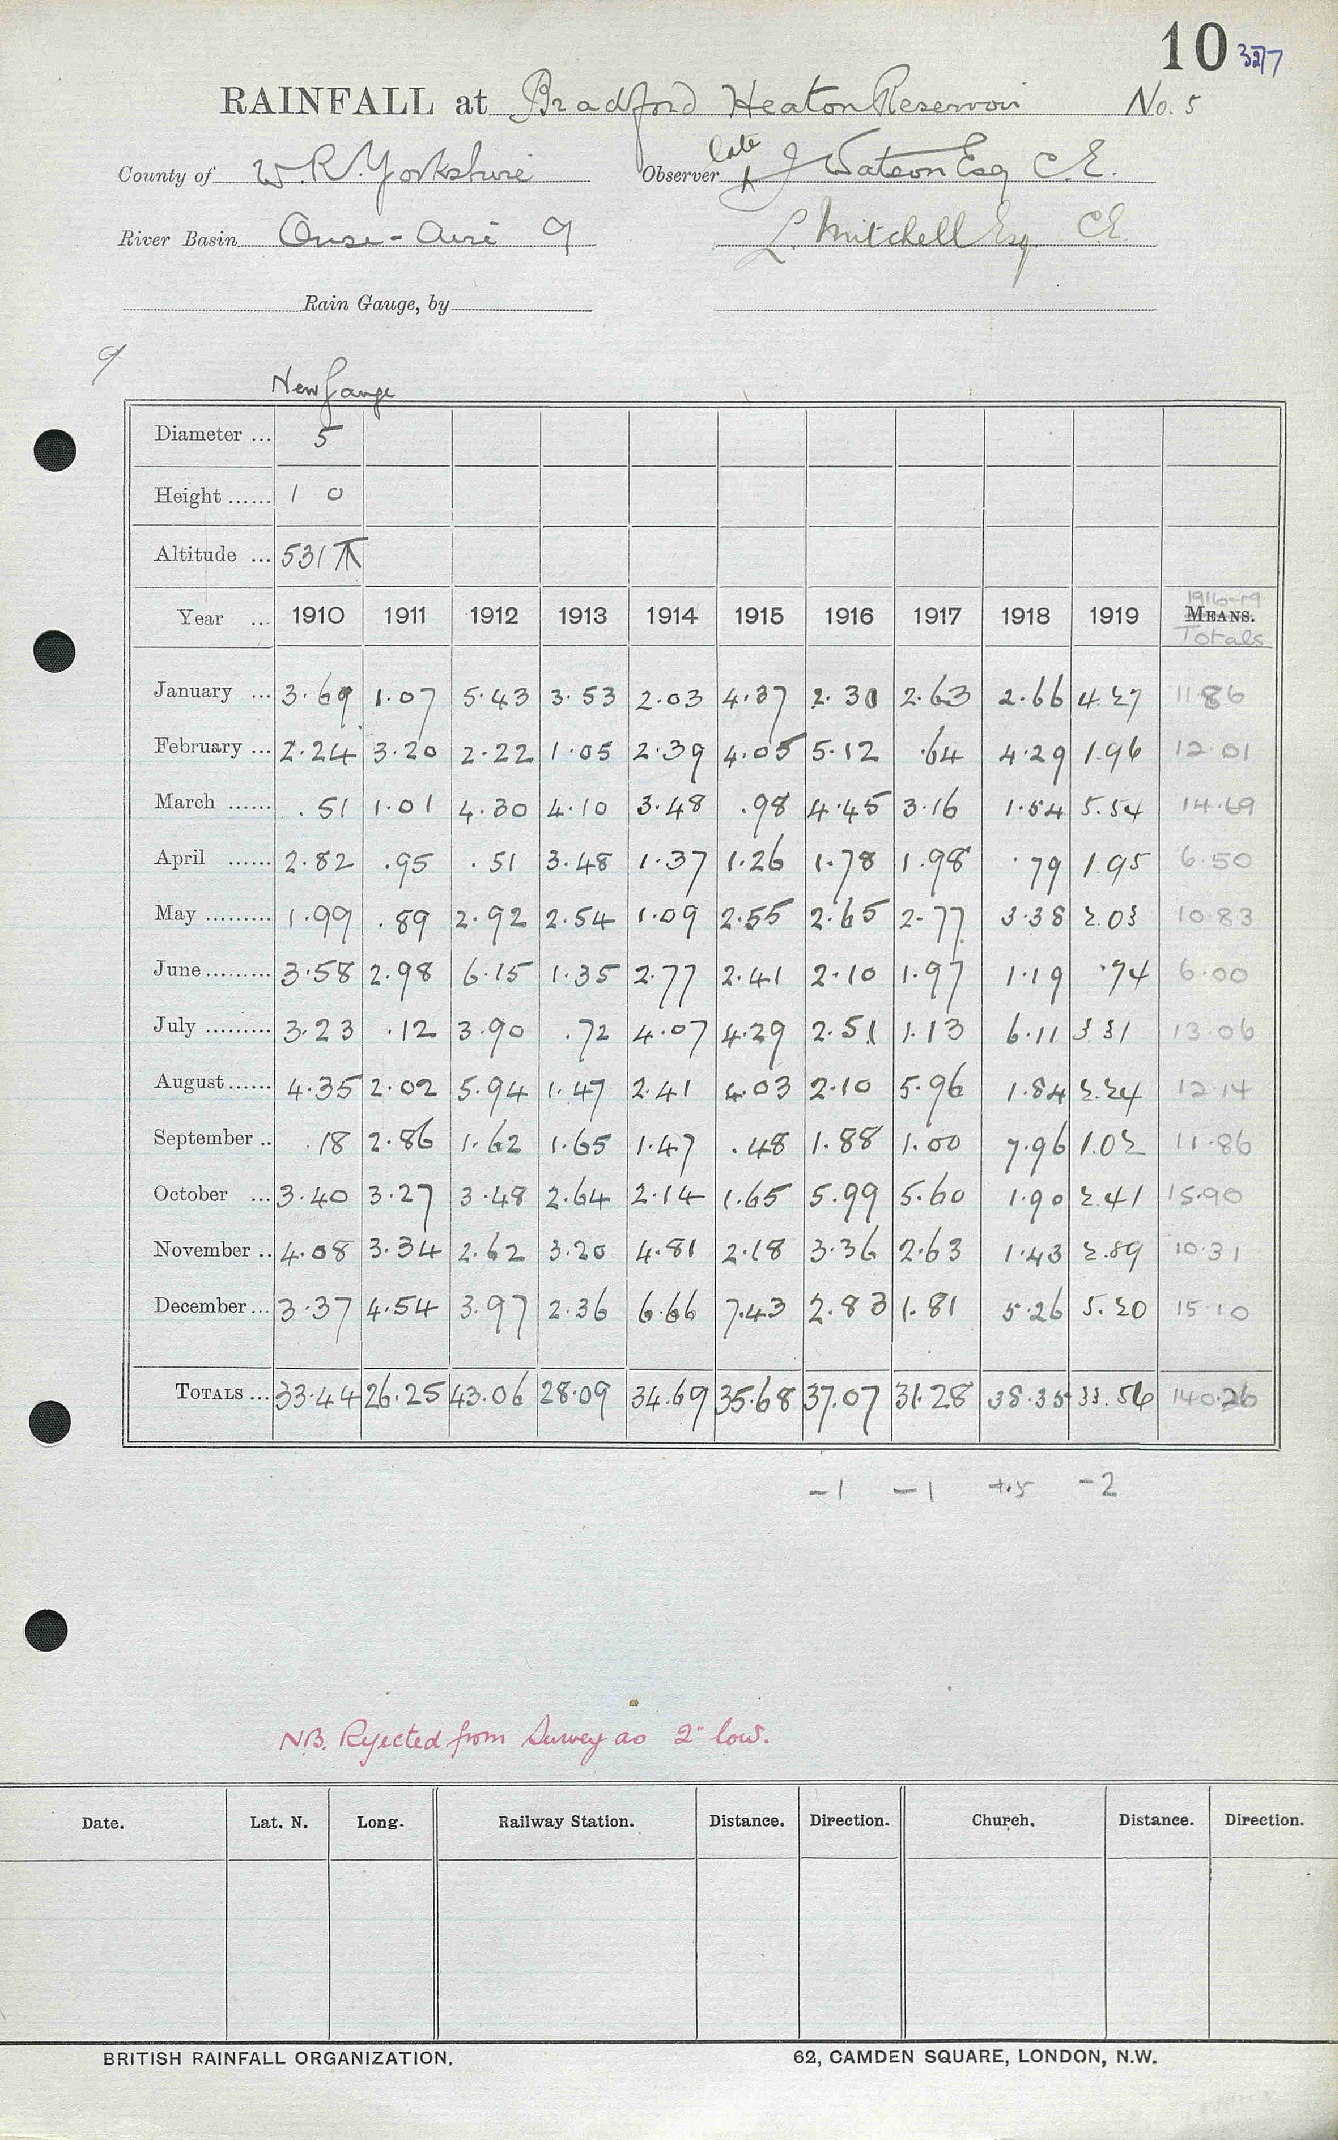 10 327
RAINFALL at Bradford Heaton Reservoir No. 5
late
County of W.R. Yorkshire Observer J Watson Esq C.E.
River Basin Ouse-Aire 9 L. Mitchell Esq CE.
Rain Gauge, by
9
New Gauge
Diameter ... 5
Height ...... 1 0
Altitude ... 531
1916-19
Year ... 1910 1911 1912 1913 1914 1915 1916 1917 1918 1919 MEANS.
Totals
January ... 3.69 1.07 5.43 3.53 2.03 4.37 2.30 2.63 2.66 4.27 11.86
February ... 2.24 3.20 2.22 1.05 2.39 4.05 5.12 .64 4.29 1.96 12.01
March ...... .51 1.01 4.30 4.10 3.48 .98 4.45 3.16 1.54 5.54 14.69
April ...... 2.82 .95 .51 3.48 1.37 1.26 1.78 1.98 .79 1.95 6.50
May ......... 1.99 .89 2.92 2.54 1.09 2.55 2.65 2.77 3.38 2.03 10.83
June ......... 3.58 2.98 6.15 1.35 2.77 2.41 2.10 1.97 1.19 .74 6.00
July ......... 3.23 .12 3.90 .72 4.07 4.29 2.51 1.13 6.11 3.31 13.06
August ...... 4.35 2.02 5.94 1.47 2.41 4.03 2.10 5.96 1.84 2.24 12.14
September .. .18 2.86 1.62 1.65 1.47 .48 1.88 1.00 7.96 1.02 11.86
October ... 3.40 3.27 3.48 2.64 2.14 1.65 5.99 5.60 1.90 2.41 15.90
November .. 4.08 3.34 2.62 3.20 4.81 2.18 3.36 2.63 1.43 2.89 10.31
December ... 3.37 4.54 3.97 2.36 6.66 7.43 2.83 1.81 5.26 5.20 15.10
TOTALS ... 33.44 26.25 43.06 28.09 34.69 35.68 37.07 31.28 38.35 33.56 140.26
-1 -1 +.5 -2
NB. Rejected from Survey as 2" low.
Date. Lat. N. Long. Railway Station. Distance. Direction. Church. Distance. Direction.
BRITISH RAINFALL ORGANIZATION. 62, CAMDEN SQUARE, LONDON, N.W.